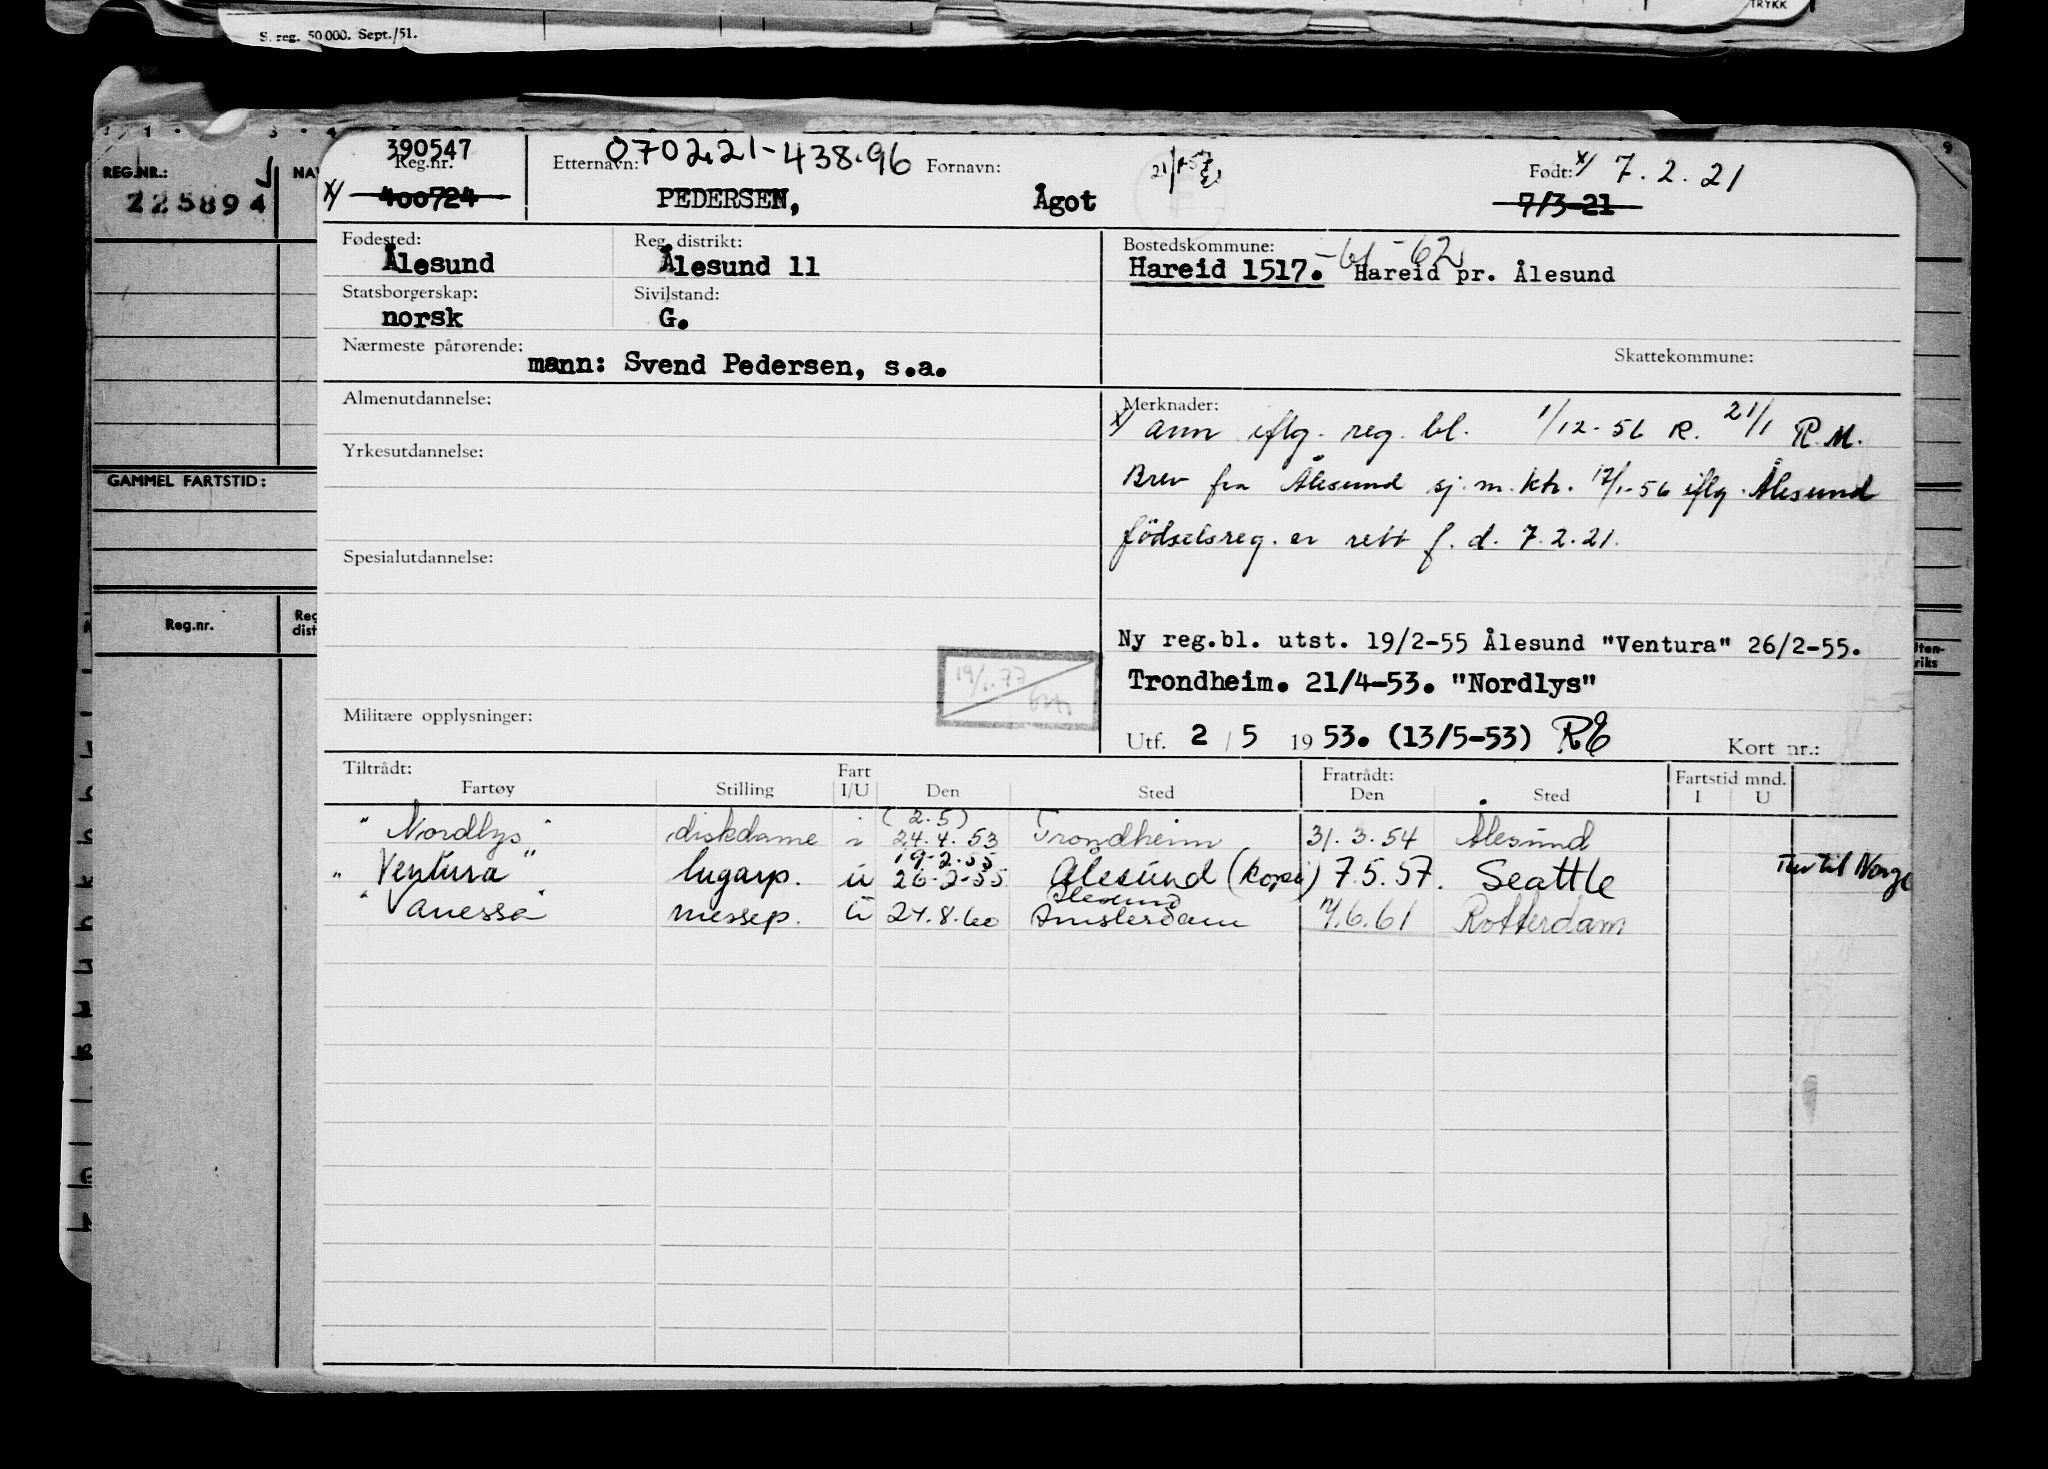 TRYKK
S. reg. 50 000. Sept./51.
REG.NR.:
225894
GAMMEL FARTSTID:
Reg.nr.
390547
Reg.nr.
x/ 400724
Etternavn: 070221-438.96
PEDERSEN,
Fornavn:
Ågot
Født: x/ 7.2.21
7/3-21
Fødested:
Ålesund
Reg. distrikt:
Ålesund 11
Bostedskommune: -61-62
Hareid 1517. Hareid pr. Ålesund
Statsborgerskap:
norsk
Sivilstand:
G.
Nærmeste pårørende:
mann: Svend Pedersen, s.a.
Skattekommune:
Almenutdannelse:
Yrkesutdannelse:
Spesialutdannelse:
Militære opplysninger:
19/1.77
Merknader:
x/ ann iflg. reg. bl. 1/12-56 R. 21/1 R.M.
Brev fra Ålesund sj.m.ktr. 17/1-56 iflg. Ålesund
födselsreg. er rett f.d. 7.2.21.
Ny reg.bl. utst. 19/2-55 Ålesund "Ventura" 26/2-55.
Trondheim. 21/4-53. "Nordlys"
Utf. 2 / 5 19 53. (13/5-53) RE
Kort nr.:
Tiltrådt:
Fartøy Stilling Fart I/U Den Sted
Fratrådt:
Den Sted
Fartstid mnd.
I U
(2.5)
"Nordlys" diskdame i 24.4.53 Trondheim 31.3.54 Ålesund
19-2-55
"Ventura" lugarp. u 26-2-55 Ålesund (kopi) 7.5.57. Seattle Tur til Norge
Ålesund
"Vanessa" messep. u 24.8.60 Amsterdam 7.6.61 Rotterdam